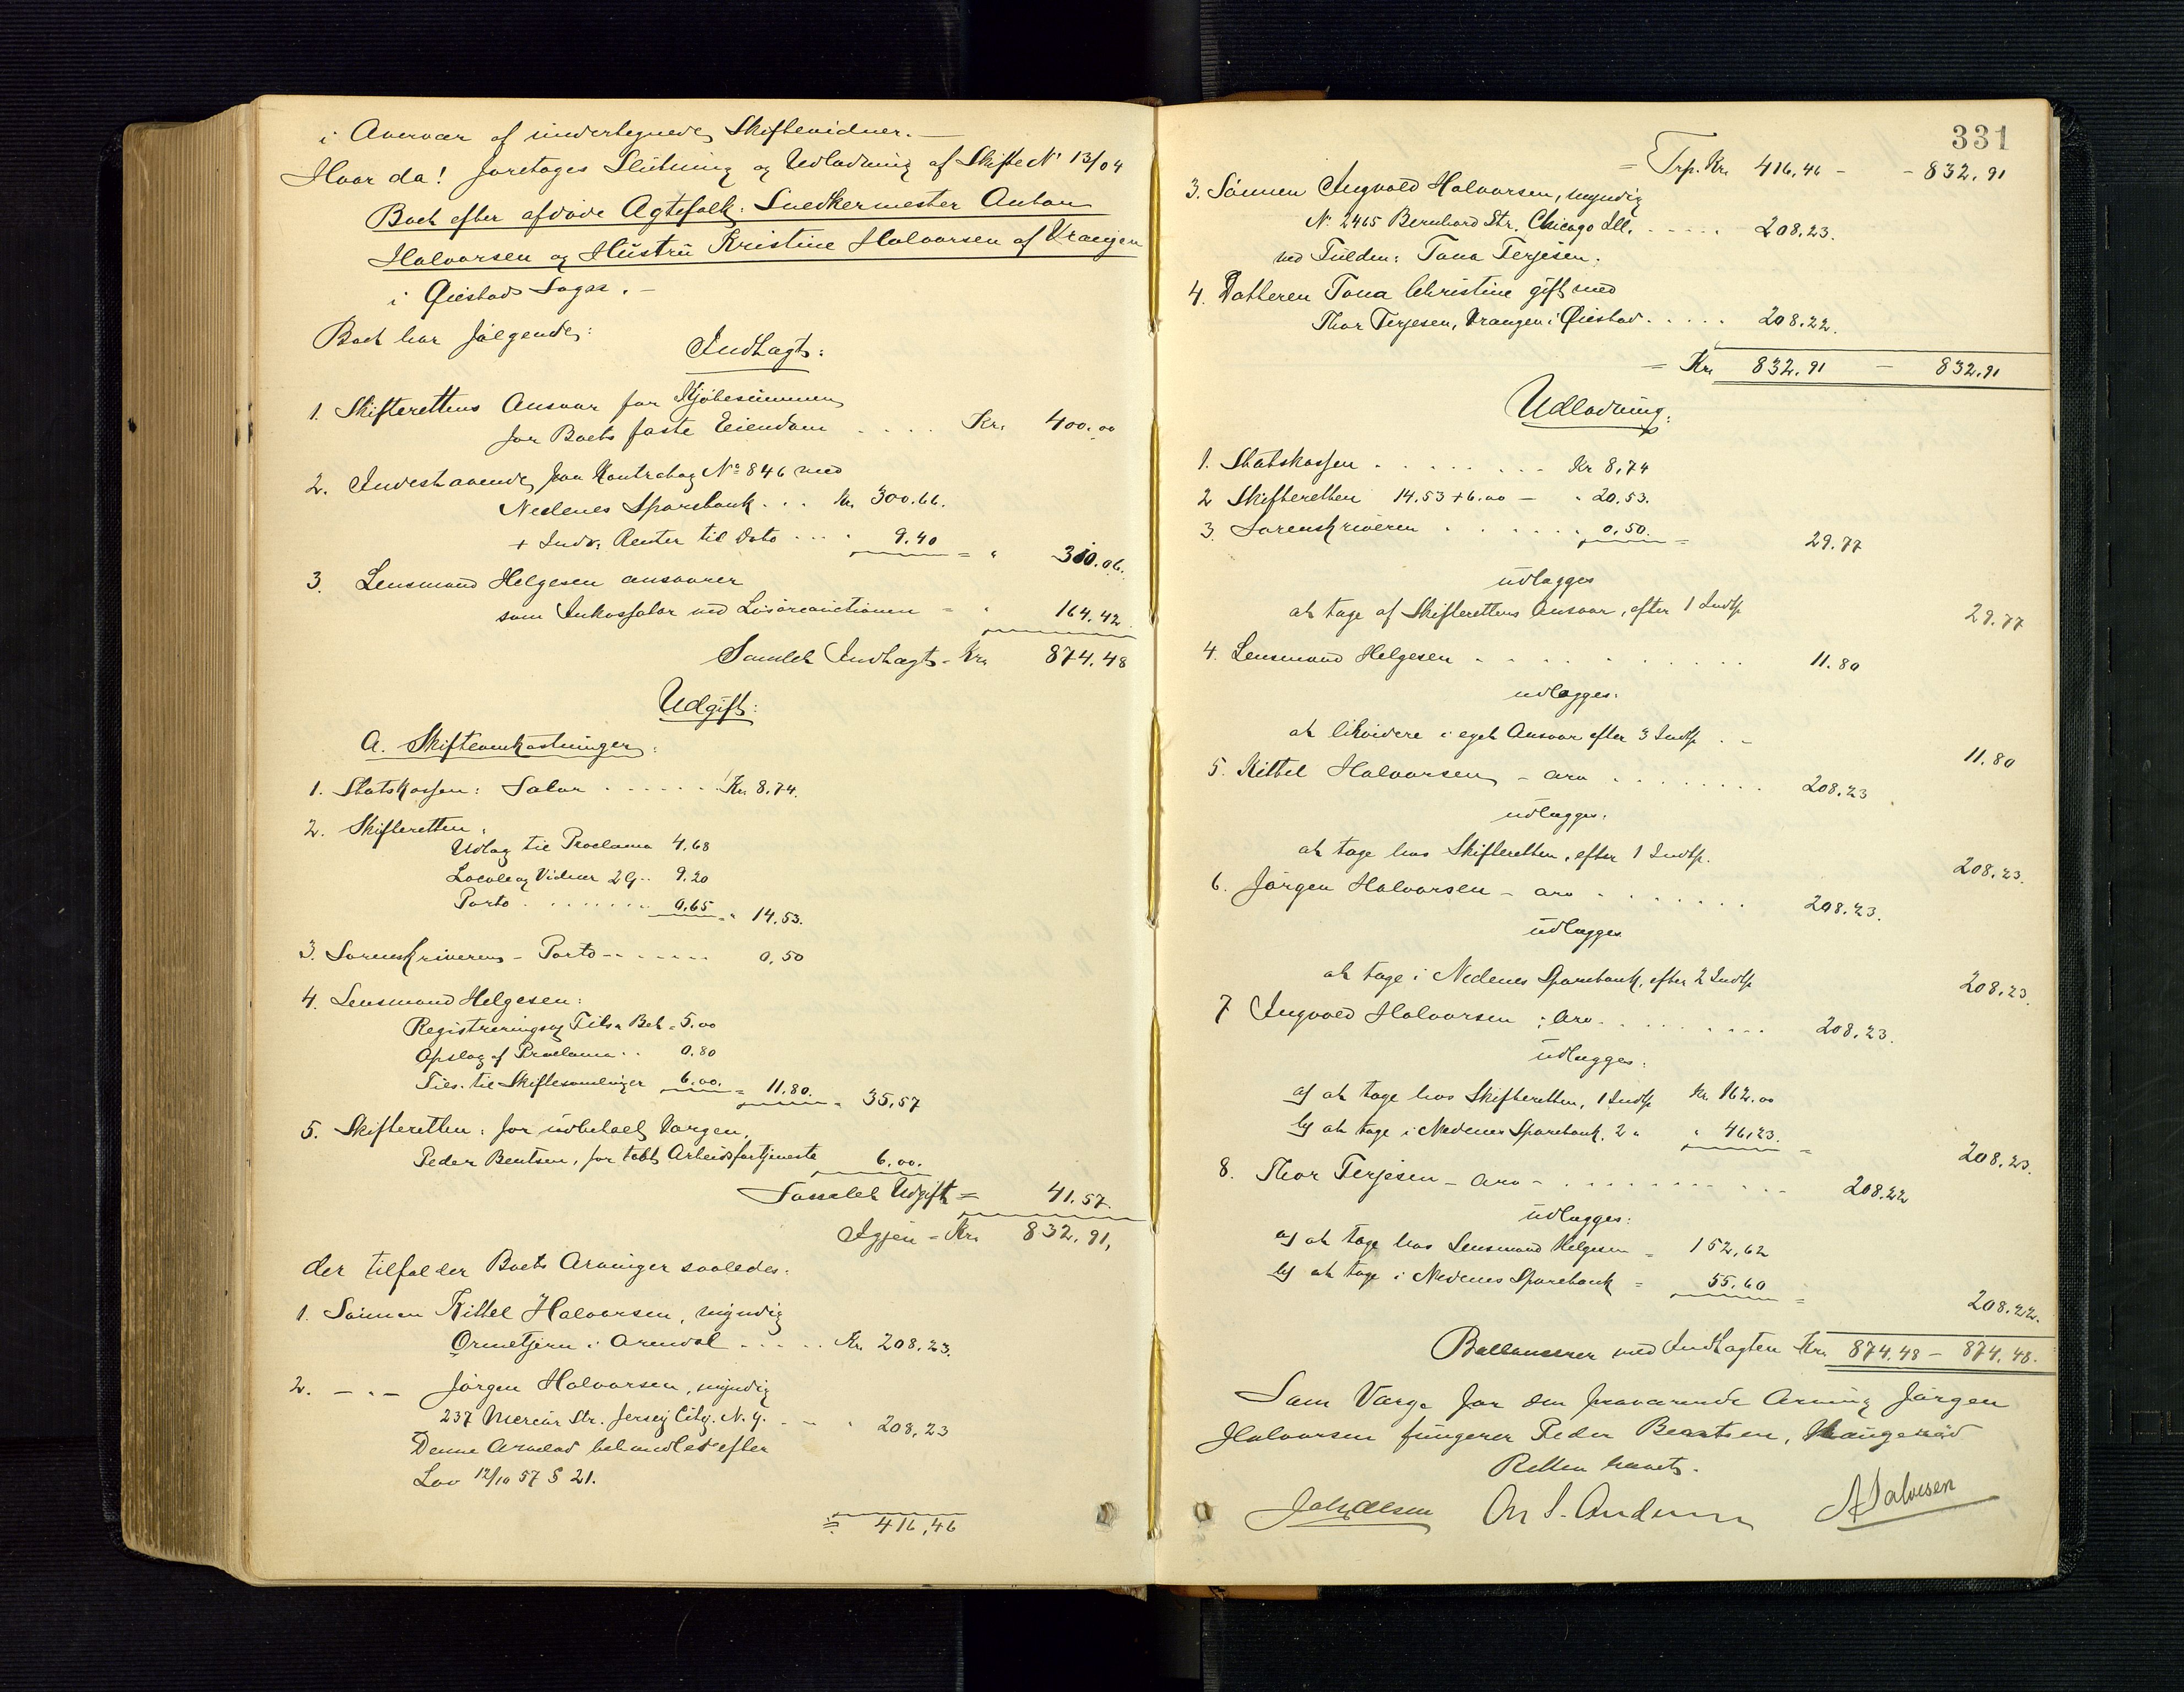 i Overvær af undertegnede Skiftevidner. —
Hvor da! foretoges Slutning og Udlodning af Skifte No 13/04
Boet efter afdøde Ægtefolk: Snedkermester Anton
Halvorsen og Hustru Kristine Halvorsen af Vrangen
i Øiestad Sogn. —
Boet har følgende:
Indtægt:
1. Skifterettens Ansvar for Kjøbesummen
for Boets faste Eiendom . . . . Kr. 400.00
2. Indestaaende paa Kontrabog No 846 med
Nedenes Sparebank . . . Kr. 300.66.
+ Indv. Renter til Dato . . . . 9.40 = " 310.06.
3. Lensmand Helgesen ansvarer
som Inkassator ved Løsøreauctionen = " 164.42
Samlet Indtægt - Kr. 874.48
Udgift:
A. Skifteomkostninger:
1. Statskassen: Salær . . . . . . Kr. 8.74.
2. Skifteretten:
Udlæg til Proclama 4.68
Locale og Vidner 2 G. . 9.20
Porto . . . . . . . . 0.65 = " 14.53.
3. Sorenskriverens - Porto - . . . . . . 0,50
4. Lensmand Helgesen:
Registrerings og Tils. Bet. - 5.00
Opslag af Proclama . . 0.80
Tils. til Skiftesamlinger 6.00. = 11.80. " 35,57
5. Skifteretten: for udbetaltVærgen,
Peder Bentsen, for tabt Arbeidsfortjeneste 6.00.
Samlet Udgift = 41.57.
Igjen = Kr. 832.91.
der tilfalder Boets Arvinger saaledes:
1. Sønnen Kittel Halvorsen, myndig
Ormetjern i Arendal . . . . . Kr. 208.23.
2. — " — Jørgen Halvorsen, myndig
237 Mercer Str. Jersey City. N. Y. . — " 208,23
Denne Arvelod behandles efter
Lov 12/10 57 § 21.
= 416,46
331
= Trp. Kr. 416,46 - - 832.91
3. Sønnen Ingvald Halvorsen, myndig
No 2465 Bernhard Str. Chicago Ill. . . . . . 208.23.
ved Fuldm: Tona Terjesen.
4. Datteren Tona Christine gift med
Thor Terjesen, Vrangen i Øiestad. . . . . 208.22.
= Kr. 832.91 — 832.91
Udlodning:
1. Statskassen . . . . . . . . . Kr 8,74
2 Skifteretten 14.53 + 6.00 — " 20.53.
3. Sorenskriveren . . . . . . 0,50. = 29.77
udlægges
at tage af Skifterettens Ansvar, efter 1 Indtp 29.77
4. Lensmand Helgesen . . . . . . . . . . 11.80
udlægges:
at likvidere i eget Ansvar efter 3 Indtp . - 11.80
5. Kittel Halvorsen - arv . . . . . . . . 208.23
udlægges:
at tage hos Skifteretten, efter 1 Indtp. 208.23.
6. Jørgen Halvorsen - arv . . . . . . . 208.23.
udlægges
at tage i Nedenes Sparebank, efter 2 Indtp 208.23.
7 Ingvald Halvorsen : arv. . . . . . . . . 208.23.
udlægges:
a) at tage hos Skifteretten, 1 Indtp Kr. 162.00
b) at tage i Nedenes Sparebank. 2 " " 46,23. = 208.23.
8. Thor Terjesen - arv - . . . . . . . . . . 208.22
udlægges:
a) at tage hos Lensmand Helgesen = 152,62
b) at tage i Nedenes Sparebank = 55.60 = 208.22.
Ballancerer med Indtægten Kr. 874.48 — 874.48.
Som Værge for den fraværende Arving Jørgen
Halvorsen fungerer Peder Bentsen,
Retten hævet.
Joh. Olsen On S. Andersen A Salvesen